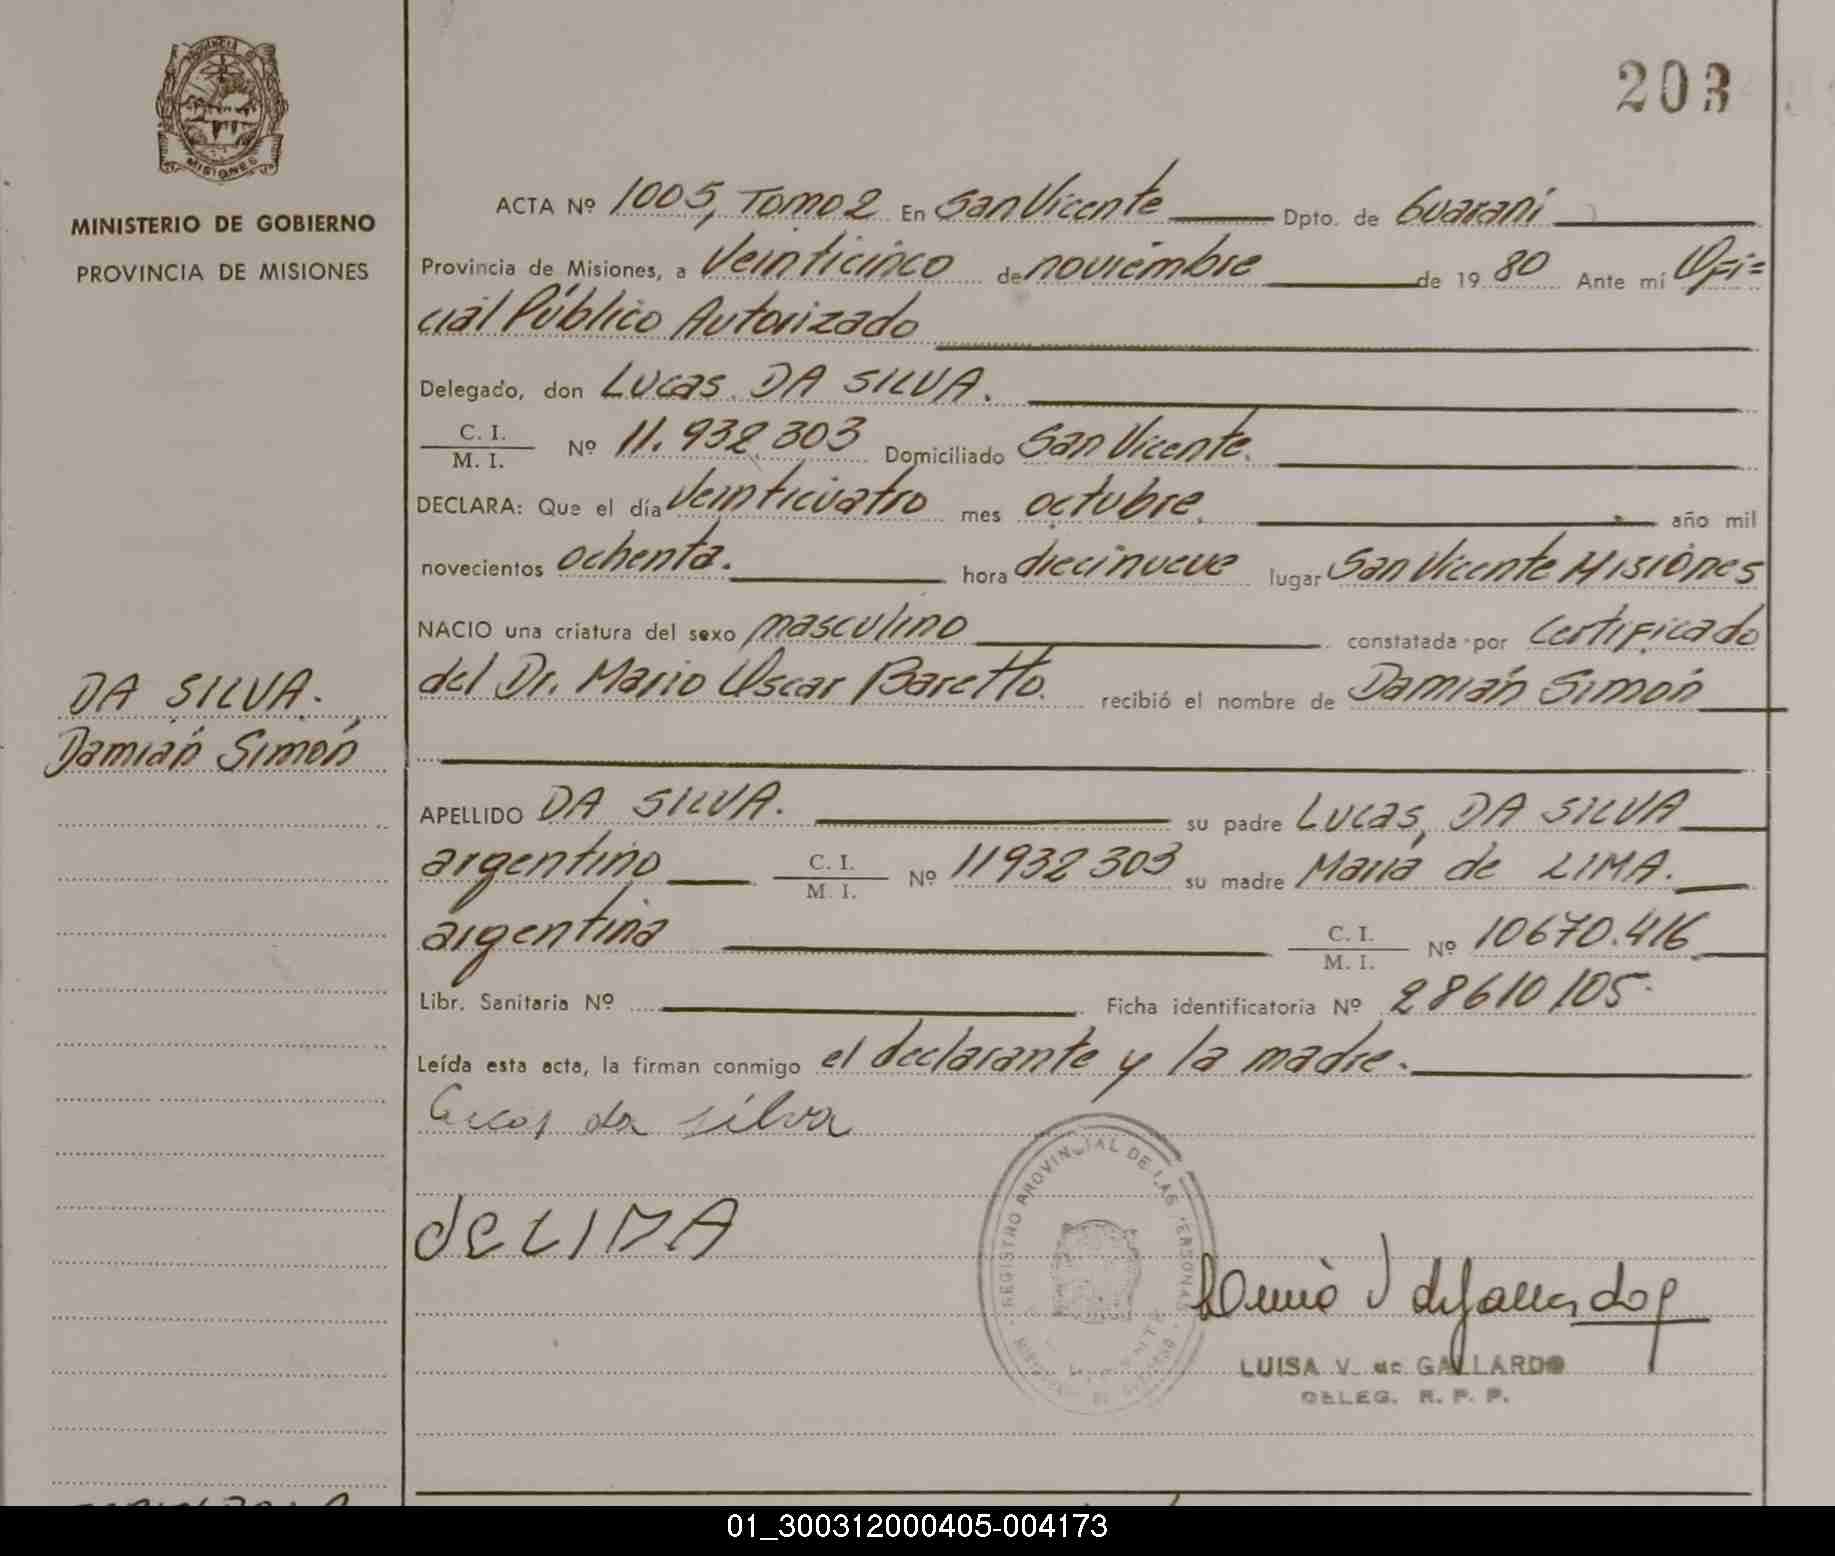 203
PROVINCIA DE
MISIONES
MINISTERIO DE GOBIERNO
PROVINCIA DE MISIONES
ACTA Nº 1005, Tomo 2 En San Vicente Dpto. de Guaraní
Provincia de Misiones, a Veinticinco de noviembre de 19 80 Ante mí Ofi=
cial Público Autorizado
Delegado, don Lucas DA SILVA.
C. I.
M. I. Nº 11.932.303 Domiciliado San Vicente.
DECLARA: Que el día Veinticuatro mes octubre. año mil
novecientos ochenta. hora diecinueve lugar San Vicente Misiones
NACIO una criatura del sexo masculino constatada por Certificado
del Dr. Mario Oscar Baretto. recibió el nombre de Damián Simón
DA SILVA.
Damián Simón
APELLIDO DA SILVA. su padre Lucas, DA SILVA
argentino C. I. M. I. Nº 11932303 su madre María de LIMA.
argentina C. I. M. I. Nº 10670.416
Libr. Sanitaria Nº Ficha identificatoria Nº 28610105.
Leída esta acta, la firman conmigo el declarante y la madre.
Lucas da silva
de LIMA
REGISTRO PROVINCIAL DE LAS PERSONAS
LUISA V. de GALLARDO
DELEG. R. P. P.
01_300312000405-004173